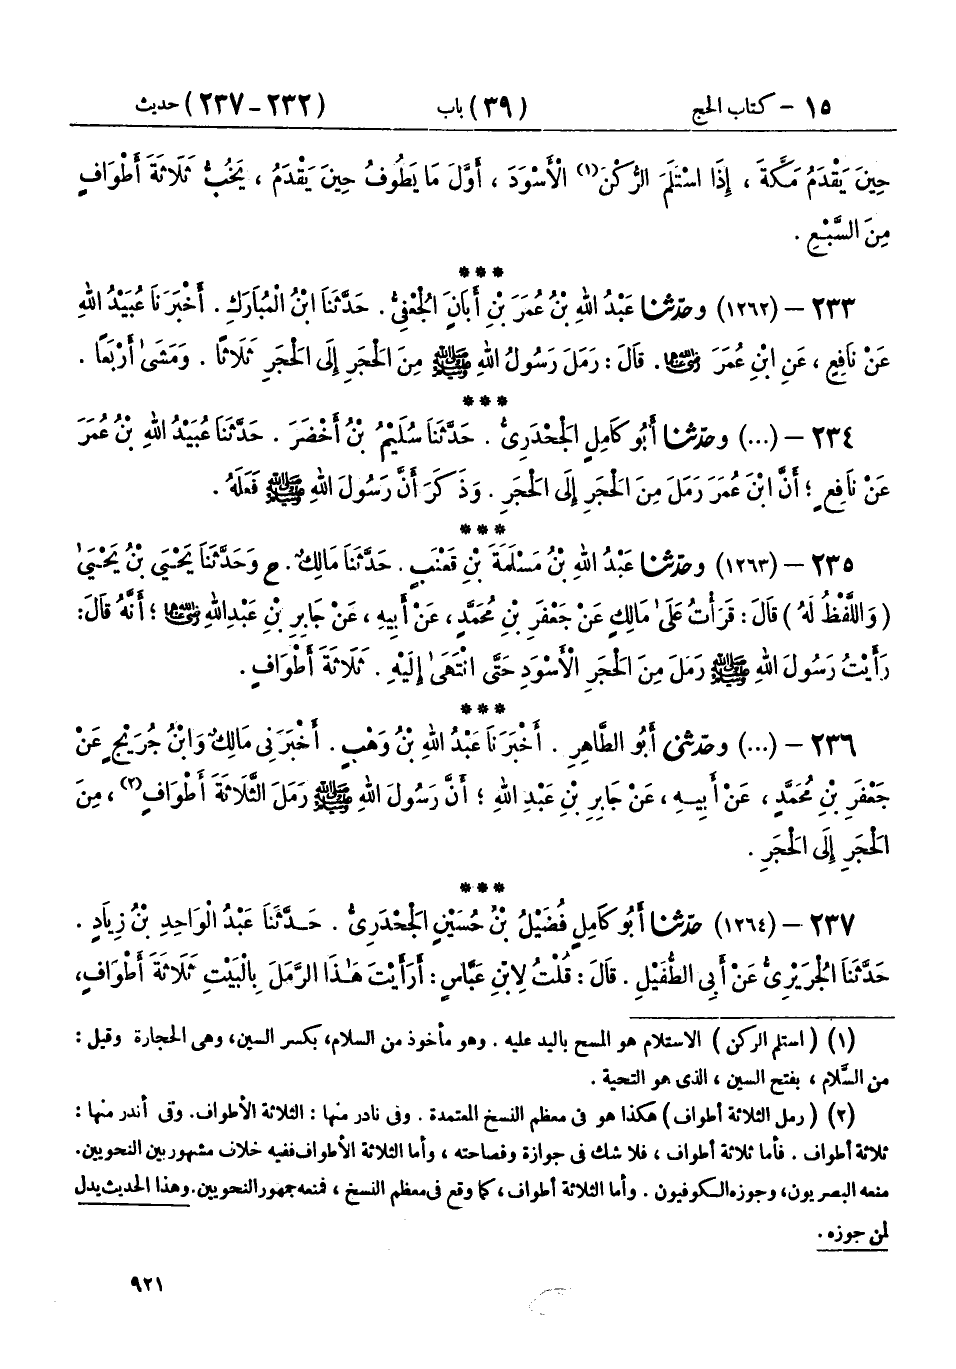 ١٥ – كتاب الحج (٣٩) باب (٢٣٢-٢٣٧) حديث
حِينَ يَقْدَمُ مَكَّةَ ، إِذَا اسْتَلَمَ الرُّكْنَ(١) الْأَسْوَدَ ، أَوَّلَ مَا يَطُوفُ حِينَ يَقْدَمُ ، يَخُبُّ ثَلَاثَةَ أَطْوَافٍ
مِنَ السَّبْعِ .
***
٢٣٣ – (١٢٦٢) وحدّثنا عَبْدُ اللهِ بْنُ عُمَرَ بْنِ أَبَانَ الْجُعْفِيُّ . حَدَّثَنَا ابْنُ الْمُبَارَكِ . أَخْبَرَنَا عُبَيْدُ اللهِ
عَنْ نَافِعٍ ، عَنِ ابْنِ عُمَرَ رضي الله عنهما . قَالَ : رَمَلَ رَسُولُ اللهِ ﷺ مِنَ الْحَجَرِ إِلَى الْحَجَرِ ثَلَاثًا . وَمَشَىٰ أَرْبَعًا .
***
٢٣٤ – (...) وحدّثنا أَبُو كَامِلٍ الْجَحْدَرِيُّ . حَدَّثَنَا سُلَيْمُ بْنُ أَخْضَرَ . حَدَّثَنَا عُبَيْدُ اللهِ بْنُ عُمَرَ
عَنْ نَافِعٍ ؛ أَنَّ ابْنَ عُمَرَ رَمَلَ مِنَ الْحَجَرِ إِلَى الْحَجَرِ . وَذَكَرَ أَنَّ رَسُولَ اللهِ ﷺ فَعَلَهُ .
***
٢٣٥ – (١٢٦٣) وحدّثنا عَبْدُ اللهِ بْنُ مَسْلَمَةَ بْنِ قَعْنَبٍ . حَدَّثَنَا مَالِكٌ . ح وَحَدَّثَنَا يَحْيَى بْنُ يَحْيَىٰ
( وَاللَّفْظُ لَهُ ) قَالَ : قَرَأْتُ عَلَىٰ مَالِكٍ عَنْ جَعْفَرِ بْنِ مُحَمَّدٍ ، عَنْ أَبِيهِ ، عَنْ جَابِرِ بْنِ عَبْدِ اللهِ رضي الله عنهما ؛ أَنَّهُ قَالَ :
رَأَيْتُ رَسُولَ اللهِ ﷺ رَمَلَ مِنَ الْحَجَرِ الْأَسْوَدِ حَتَّى انْتَهَىٰ إِلَيْهِ . ثَلَاثَةَ أَطْوَافٍ .
***
٢٣٦ – (...) وحدّثني أَبُو الطَّاهِرِ . أَخْبَرَنَا عَبْدُ اللهِ بْنُ وَهْبٍ . أَخْبَرَنِي مَالِكٌ وَابْنُ جُرَيْجٍ عَنْ
جَعْفَرِ بْنِ مُحَمَّدٍ ، عَنْ أَبِيهِ ، عَنْ جَابِرِ بْنِ عَبْدِ اللهِ ؛ أَنَّ رَسُولَ اللهِ ﷺ رَمَلَ الثَّلَاثَةَ أَطْوَافٍ(٢) ، مِنَ
الْحَجَرِ إِلَى الْحَجَرِ .
***
٢٣٧ – (١٢٦٤) حدّثنا أَبُو كَامِلٍ فُضَيْلُ بْنُ حُسَيْنٍ الْجَحْدَرِيُّ . حَدَّثَنَا عَبْدُ الْوَاحِدِ بْنُ زِيَادٍ .
حَدَّثَنَا الْجُرَيْرِيُّ عَنْ أَبِي الطُّفَيْلِ . قَالَ : قُلْتُ لِابْنِ عَبَّاسٍ : أَرَأَيْتَ هَٰذَا الرَّمَلَ بِالْبَيْتِ ثَلَاثَةَ أَطْوَافٍ ،
(١) ( استلم الركن ) الاستلام هو المسح باليد عليه . وهو مأخوذ من السلام، بكسر السين، وهى الحجارة وقيل :
من السَّلام ، بفتح السين ، الذى هو التحية .
(٢) ( رمل الثلاثة أطواف ) هكذا هو فى معظم النسخ المعتمدة . وفى نادر منها : الثلاثة الأطواف. وفى أندر منها :
ثلاثة أطواف . فأما ثلاثة أطواف ، فلا شك فى جوازة وفصاحته ، وأما الثلاثة الأطواف ففيه خلاف مشهور بين النحويين.
منعه البصريون، وجوزه الكوفيون . وأما الثلاثة أطواف، كما وقع فى معظم النسخ ، فمنعه جمهور النحويين. وهذا الحديث يدل
لمن جوزه .
٩٢١